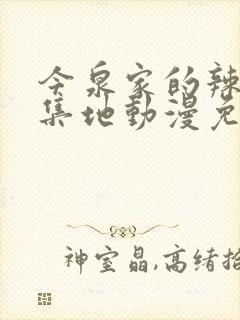 今泉家的辣
集地動漫免
神室晶,高绪拾